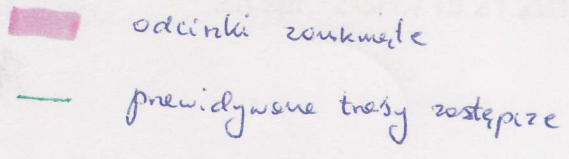 odcinki zamknięte
przewidywane trasy zastępcze